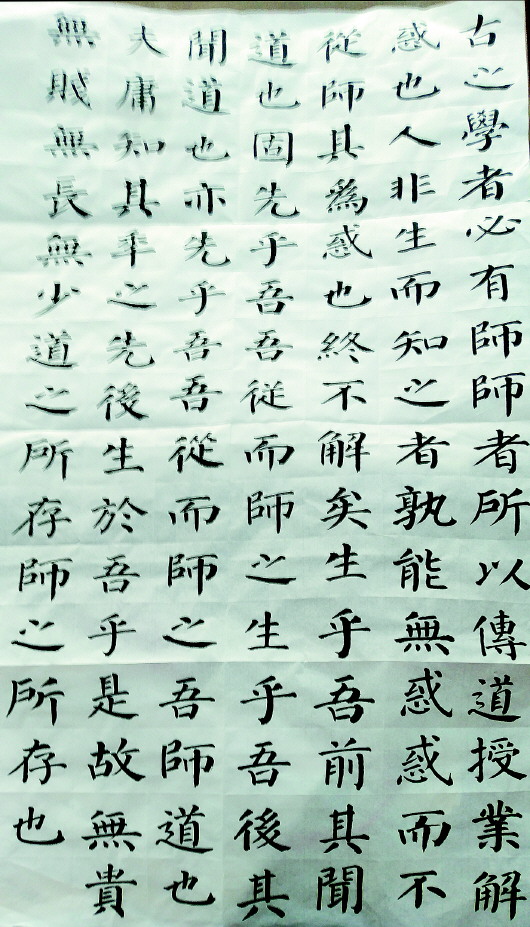 古之學者必有師師者所以傳道授業解
惑也人非生而知之者孰能無惑惑而不
從師其爲惑也終不解矣生乎吾前其聞
道也固先乎吾吾從而師之生乎吾後其
聞道也亦先乎吾吾從而師之吾師道也
夫庸知其年之先後生於吾乎是故無貴
無賤無長無少道之所存師之所存也